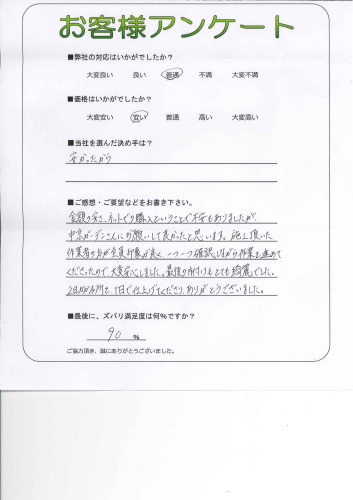 お客様アンケート
■弊社の対応はいかがでしたか?
大変良い 良い 普通 不満 大変不満
■価格はいかがでしたか?
大変安い 安い 普通 高い 大変高い
■当社を選んだ決め手は?
安かったから
■ご感想・ご要望などをお書き下さい。
金額の安さ、ネットでの購入ということで不安もありましたが
中京ガーデンさんにお願いして良かったと思います。施工頂いた
作業者の方が全員印象が良く、一つ一つ確認しながら作業を進めて
くださったので、大変安心しました。最後の片付けもとても綺麗でした。
2日かかる所を、1日で仕上げてくださり、ありがとうございました。
■最後に、ズバリ満足度は何%ですか?
90 %
ご協力頂き、誠にありがとうございました。